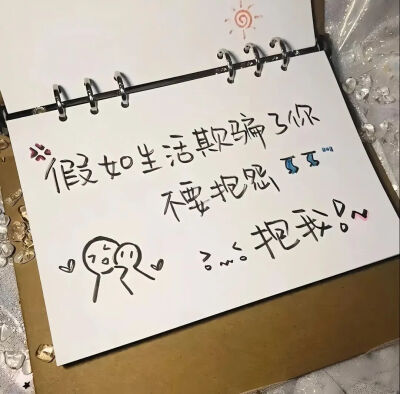 假如生活欺骗了你
不要抱怨
抱我!~